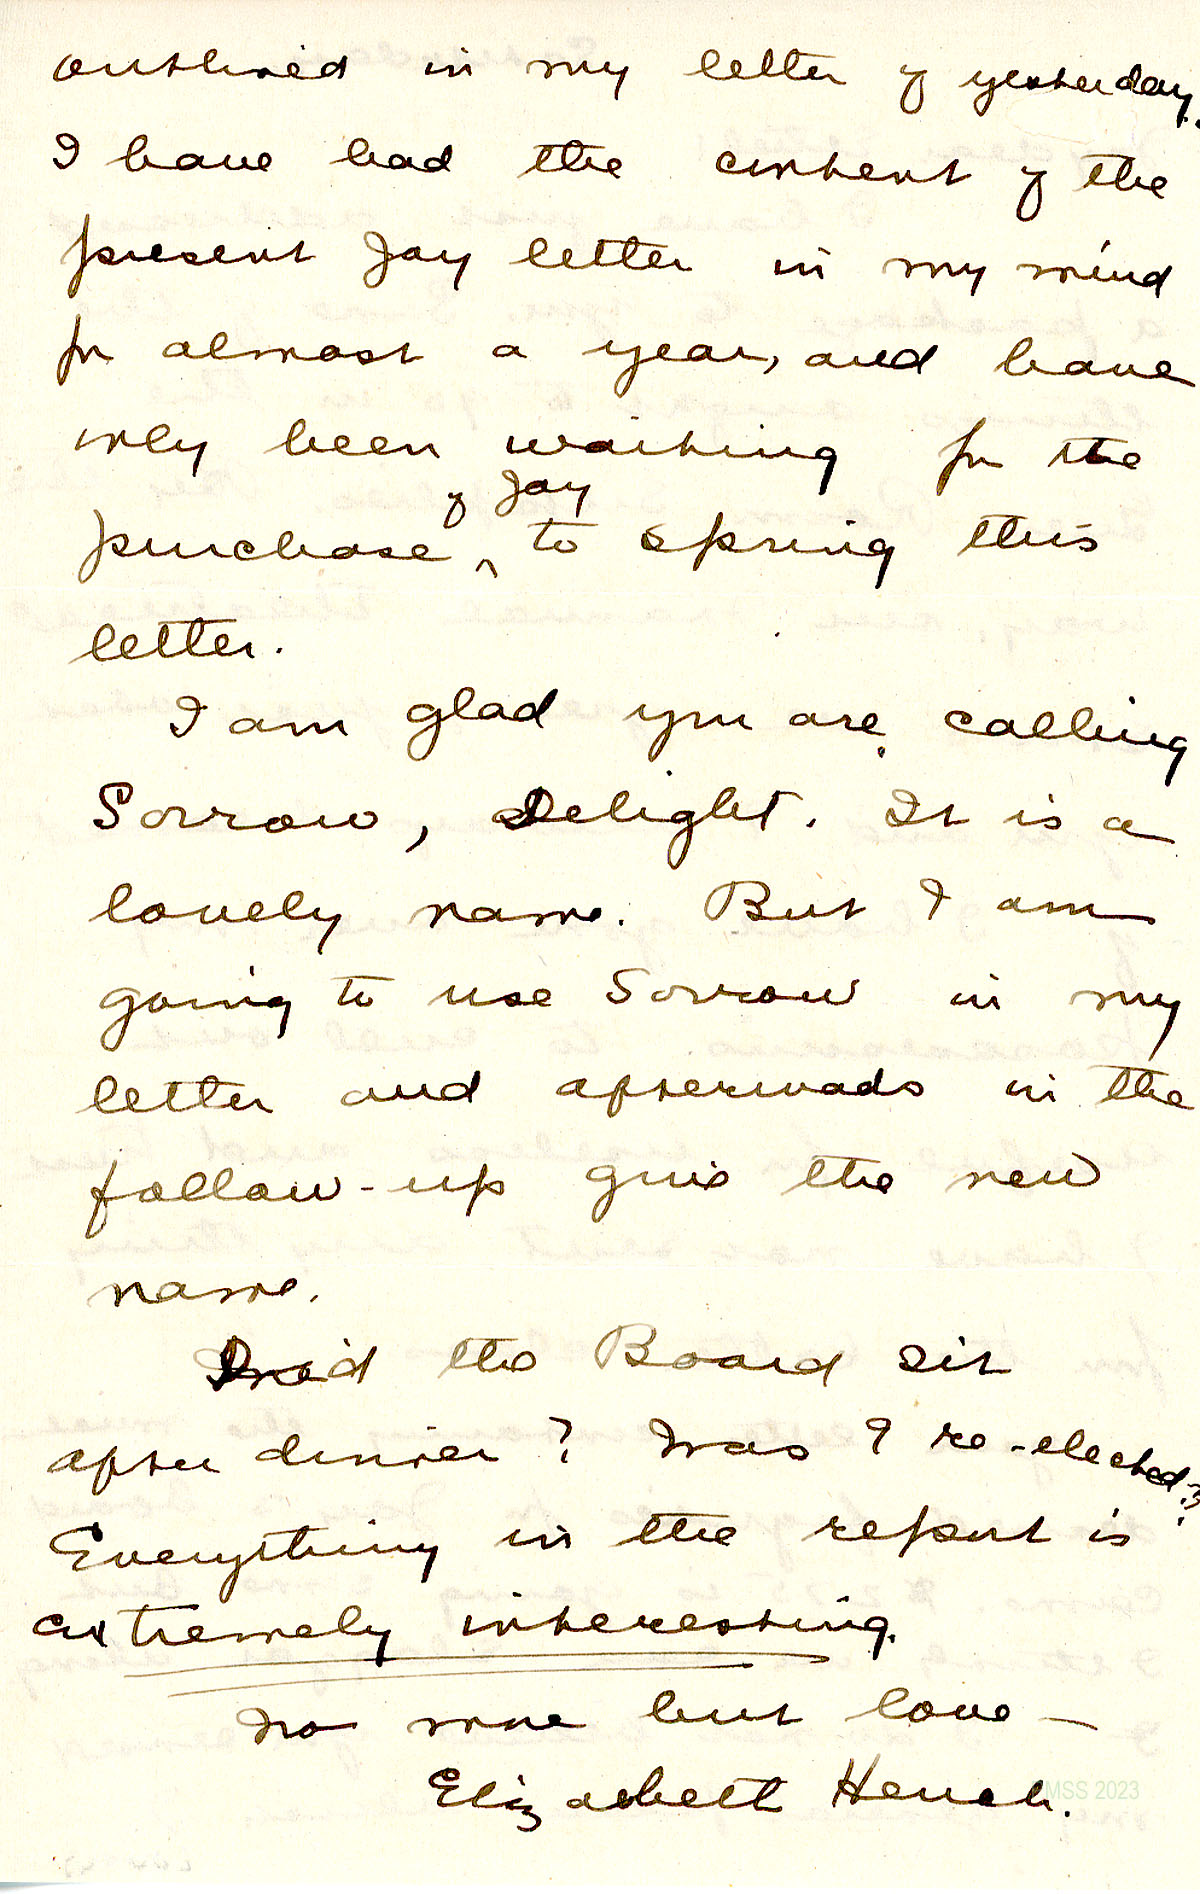 outlined in my letter of yesterday.
I have had the content of the
present Jay letter in my mind
for almost a year, and have
only been waiting for the
of Jay
purchase ^ to spring this
letter.
I am glad you are calling
Sorrow, Delight. It is a
lovely name. But I am
going to use Sorrow in my
letter and afterwads in the
follow-up give the new
name.
Did the Board sit
after dinner? Was I re-elected?
Everything in the report is
extremely interesting.
No more but love —
Elizabeth Hench.
PMSS 2023